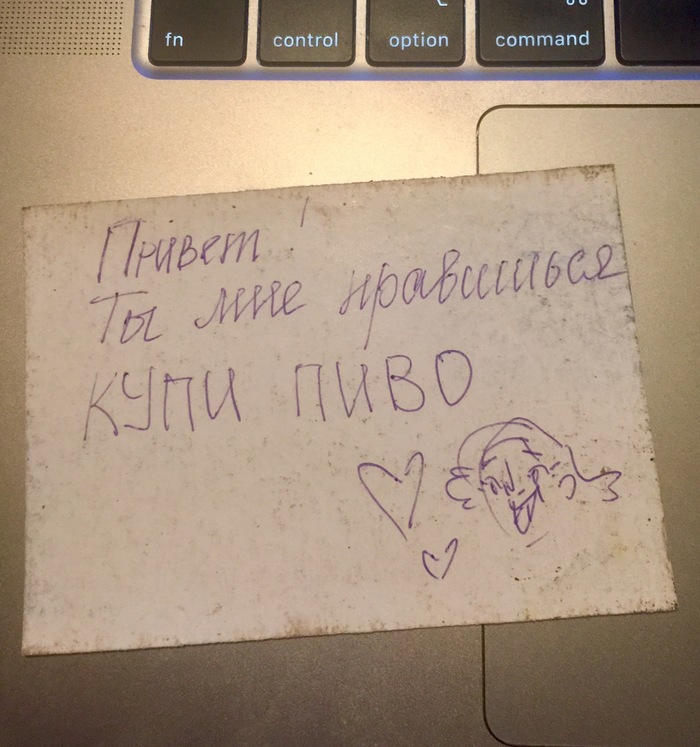 fn control option command
Привет !
Ты мне нравишься
КУПИ ПИВО